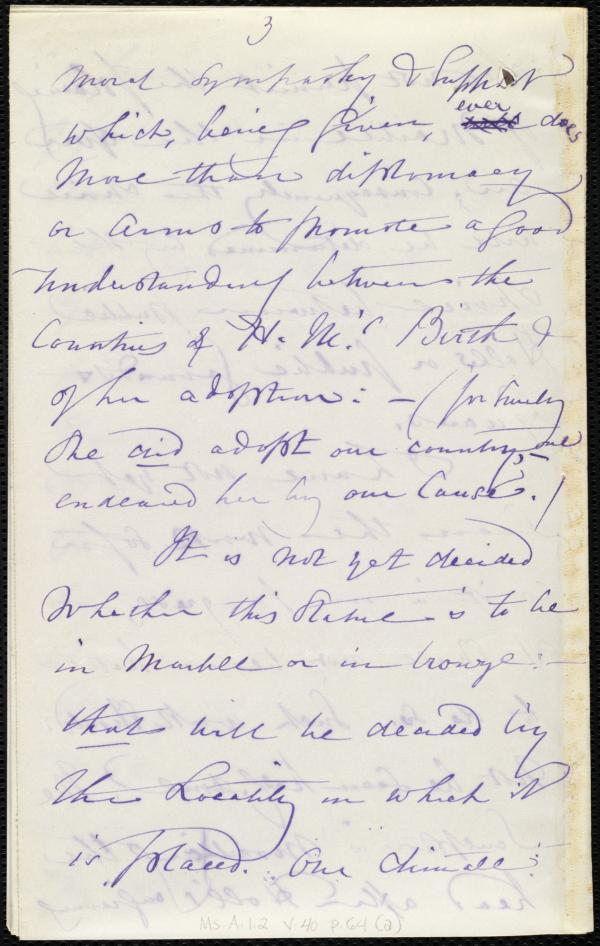 3
moral sympathy & support
which, being given, ever does
more than diplomacy
or arms to promote a good
understanding between the
Countries of H. M.'s Birth &
of her adoption: — (for surely
She did adopt our country, and
endeared her by our Cause.)
It is not yet decided
Whether this Statue is to be
in Marble or in bronze: —
that will be decided by
the Locality in which it
is placed. Our climate:
Ms. A. 1.2 v. 40 p. 64 (a)